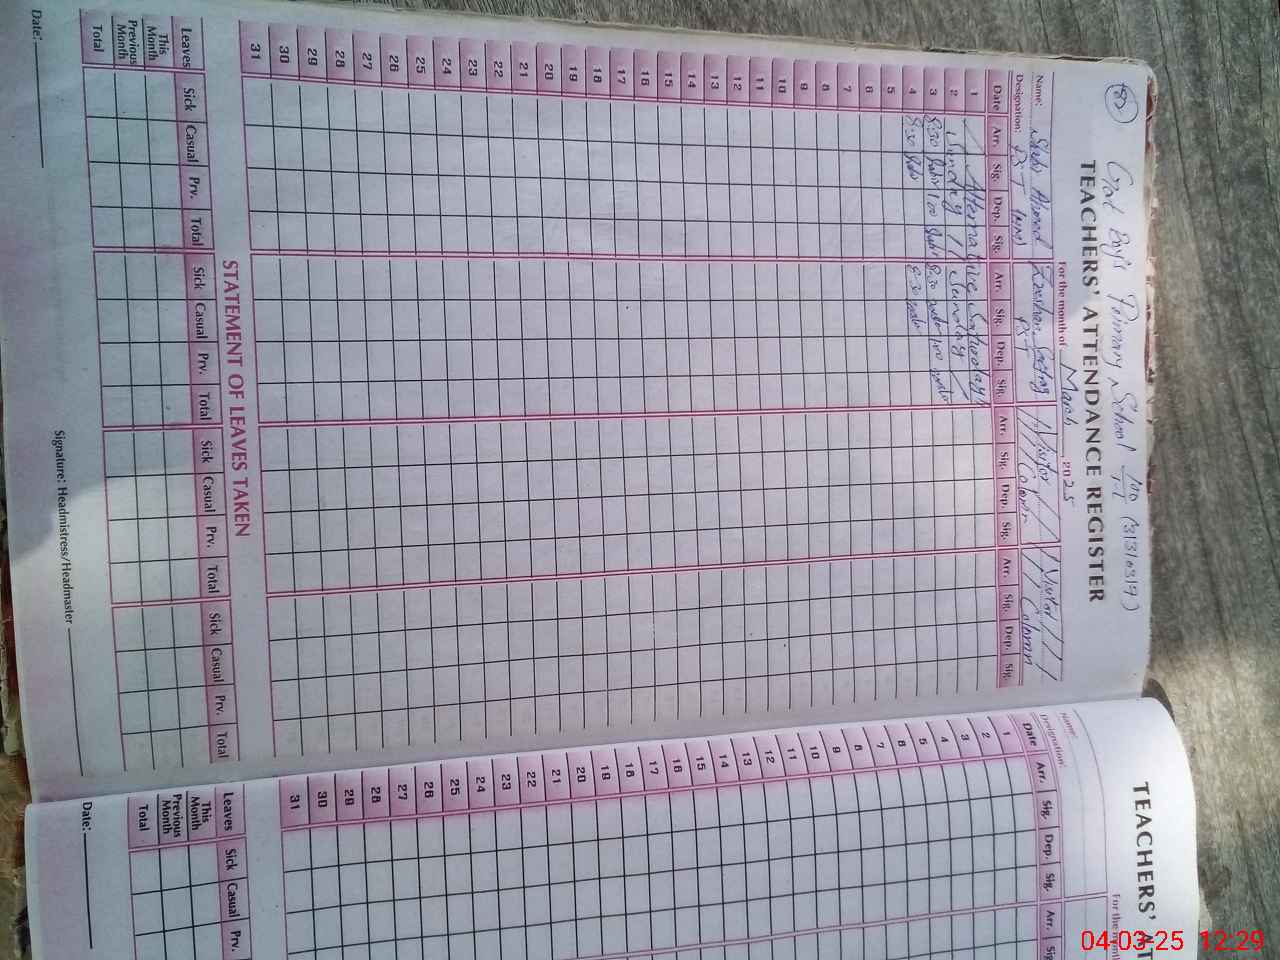 Govt Boys Primary School
TEACHERS' ATTENDANCE REGISTER
For the month of March, 2025
Name: Ahmed
Designation: PST
PST
Visitor
Colomn
Visitor
Colomn
Date Arr. Sig. Dep. Sig. Arr. Sig. Dep. Sig. Arr. Sig. Dep. Sig. Arr. Sig. Dep. Sig.
1 Alternative Saturday
2 Sunday Sunday
3 8:30 1:00 8:30 1:00
4 8:30 8:30
5
6
7
8
9
10
11
12
13
14
15
16
17
18
19
20
21
22
23
24
25
26
27
28
29
30
31
STATEMENT OF LEAVES TAKEN
Leaves Sick Casual Prv. Total Sick Casual Prv. Total Sick Casual Prv. Total Sick Casual Prv. Total
This Month
Previous Month
Total
Date:
Signature: Headmistress/Headmaster
TEACHERS' AT
For the month
Name:
Designation:
Date Arr. Sig. Dep. Sig. Arr. Sig.
1
2
3
4
5
6
7
8
9
10
11
12
13
14
15
16
17
18
19
20
21
22
23
24
25
26
27
28
29
30
31
Leaves Sick Casual Prv.
This Month
Previous Month
Total
Date:
04-03-25 12:29